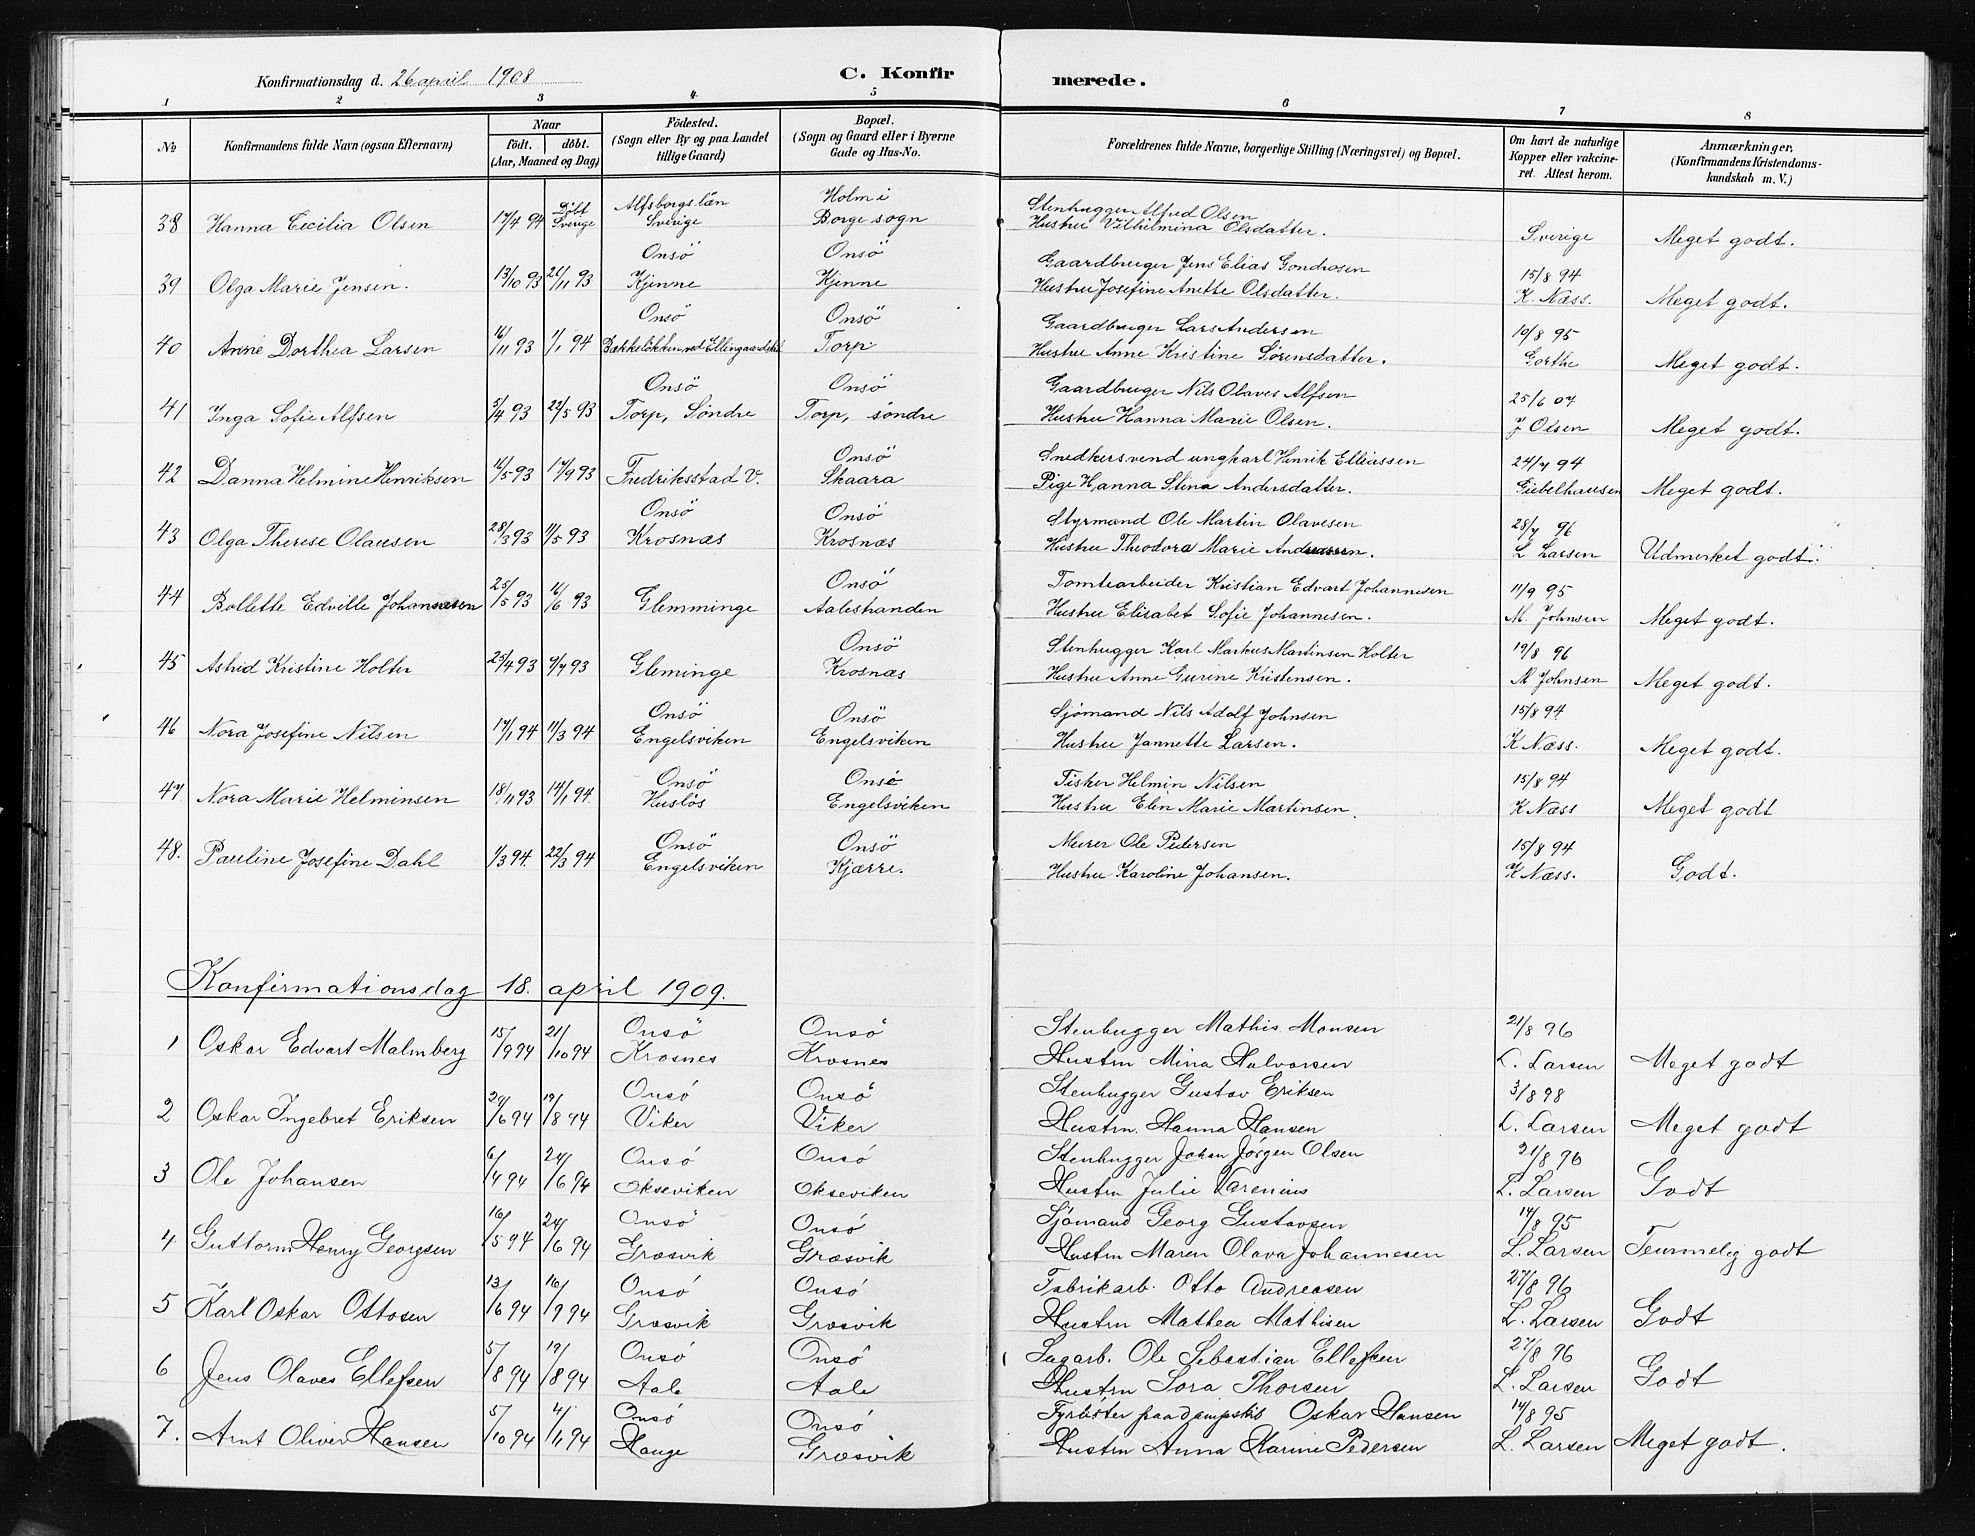 Konfirmationsdag d. 26 april 1908
C. Konfirmerede.
1 2 3 4. 5 6 7 8
No
Konfirmandens fulde Navn (ogsaa Efternavn)
Naar
födt. döbt.
(Aar, Maaned og Dag)
Födested.
(Sogn eller By og paa Landet
tillige Gaard)
Bopæl.
(Sogn og Gaard eller i Byerne
Gade og Hus-No.
Forældrenes fulde Navne, borgerlige Stilling (Næringsvei) og Bopæl.
Om havt de naturlige
Kopper eller vakcine-
ret. Attest herom.
Anmærkninger,
(Konfirmandens Kristendoms-
kundskab m. V.)
38 Hanna Cecilia Olsen 17/4 94 Döbt Sverige Alfsborgs län Sverige Holm i Borge sogn Stenhugger Alfred Olsen
Hustru Vilhilmina Olsdatter. Sverige Meget godt.
39 Olga Marie Jensen. 13/10 93 26/11 93 Onsö Kjenne Onsö Kjenne Gaardbruger Jens Elias Gondrosen 15/8 94
Hustru Josefine Anette Olsdatter. K. Næss. Meget godt.
40 Anne Dorthea Larsen 16/11 93 1/1 94 Onsö Bækkelökken ved Ellingaardskil Onsö Torp Gaardbruger Lars Andersen 10/8 95
Hustru Anne Kristine Sørensdatter. Gorthe Meget godt.
41 Inga Sofie Alfsen 5/4 93 22/5 93 Onsö Torp, Søndre Onsö Torp, søndre Gaardbruger Nils Olaves Alfsen 25/6 07
Hustru Hanna Marie Olsen. J Olsen Meget godt.
42 Danna Helmine Henriksen 16/5 93 17/9 93 Fredriksstad V. Onsö Skaara Snedkersvend ungkarl Henrik Elliassen 24/7 94
Pige Hanna Stina Andersdatter. Giebelhausen Meget godt.
43 Olga Therese Olausen 28/3 93 11/5 93 Onsö Krosnæs Onsö Krosnæs Styrmand Ole Martin Olavesen 28/7 96
Hustru Theodora Marie Andreassen. L Larsen Udmerket godt.
44 Bollette Edville Johannesen 25/5 93 16/6 93 Glemminge Onsö Aalestranden Tomtearbeider Kristian Edvart Johannesen 11/9 95
Hustru Elisabet Sofie Johannesen. M. Johnsen Meget godt.
45 Astrid Kristine Holter 25/4 93 9/7 93 Gleminge Onsö Krosnæs Stenhugger Karl Markus Martinsen Holter 19/8 96
Hustru Anne Gurene Kristensen. M Johnsen Meget godt.
46 Nora Josefine Nilsen 17/1 94 11/3 94 Onsö Engelsviken Onsö Engelsviken Sjömand Nils Adolf Johnsen 15/8 94
Hustru Jannette Larsen. K Næss. Meget godt.
47 Nora Marie Helminsen 18/11 93 14/1 94. Onsö Husløs Onsö Engelsviken Fisker Helmin Nilsen 15/8 94
Hustru Elen Marie Martinsen. K Næss Meget godt
48. Pauline Josefine Dahl 1/3 94. 22/3 94 Onsö Engelsviken Onsö Kjærre. Murer Ole Pedersen 15/8 94
Hustru Karoline Johansen. K Næss. Godt.
Konfirmationsdag 18. april 1909.
1 Oskar Edvart Malmberg 15/9 94 21/10 94 Onsö Krosnes Onsö Krosnes Stenhugger Mathis Monsen 21/8 96
Hustru Mina Halvorsen L. Larsen Meget godt
2 Oskar Ingebret Eriksen 29/6 94 19/8 94 Onsö Viker Onsö Viker Stenhugger Gustav Eriksen 3/8 98
Hustru Hanna Hansen L. Larsen Meget godt
3 Ole Johansen 6/4 94 24/6 94 Onsö Okseviken Onsö Okseviken Stenhugger Johan Jørgen Olsen 21/8 96
Hustru Julie Varenius L. Larsen Godt
4 Guttorm Henry Georgsen 16/5 94 24/6 94 Onsö Græsvik Onsö Græsvik Sjömand Georg Gustavsen 14/8 95
Hustru Maren Olava Johannesen L. Larsen Temmelig godt
5 Karl Oskar Ottosen 13/6 94 16/9 94 Onsö Græsvik Onsö Græsvik Fabrikarb. Otto Andreasen 27/8 96
Hustru Mathea Mathisen L. Larsen Godt
6 Jens Olaves Ellefsen 5/8 94 19/8 94 Onsö Aale Onsö Aale Sagarb. Ole Sebastian Ellefsen 27/8 96
Hustru Sora Thorsen L. Larsen Godt
7. Arnt Oliver Hansen 5/10 94 4/11 94 Onsö Hauge Onsö Græsvik Fyrböter paa dampskib Oskar Hansen 14/8 95
Hustru Anna Karine Pedersen L. Larsen Meget godt.